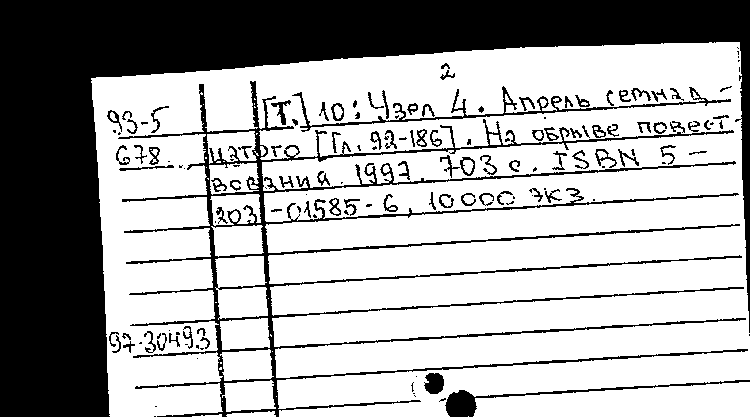 2
93-5 [Т.] 10: Узел 4. Апрель семнад-
678 цатого [Гл. 92-186]. На обрыве повест-
вования. 1997. 703 с. ISBN 5-
203-01585-6, 10000 экз.
97-30493